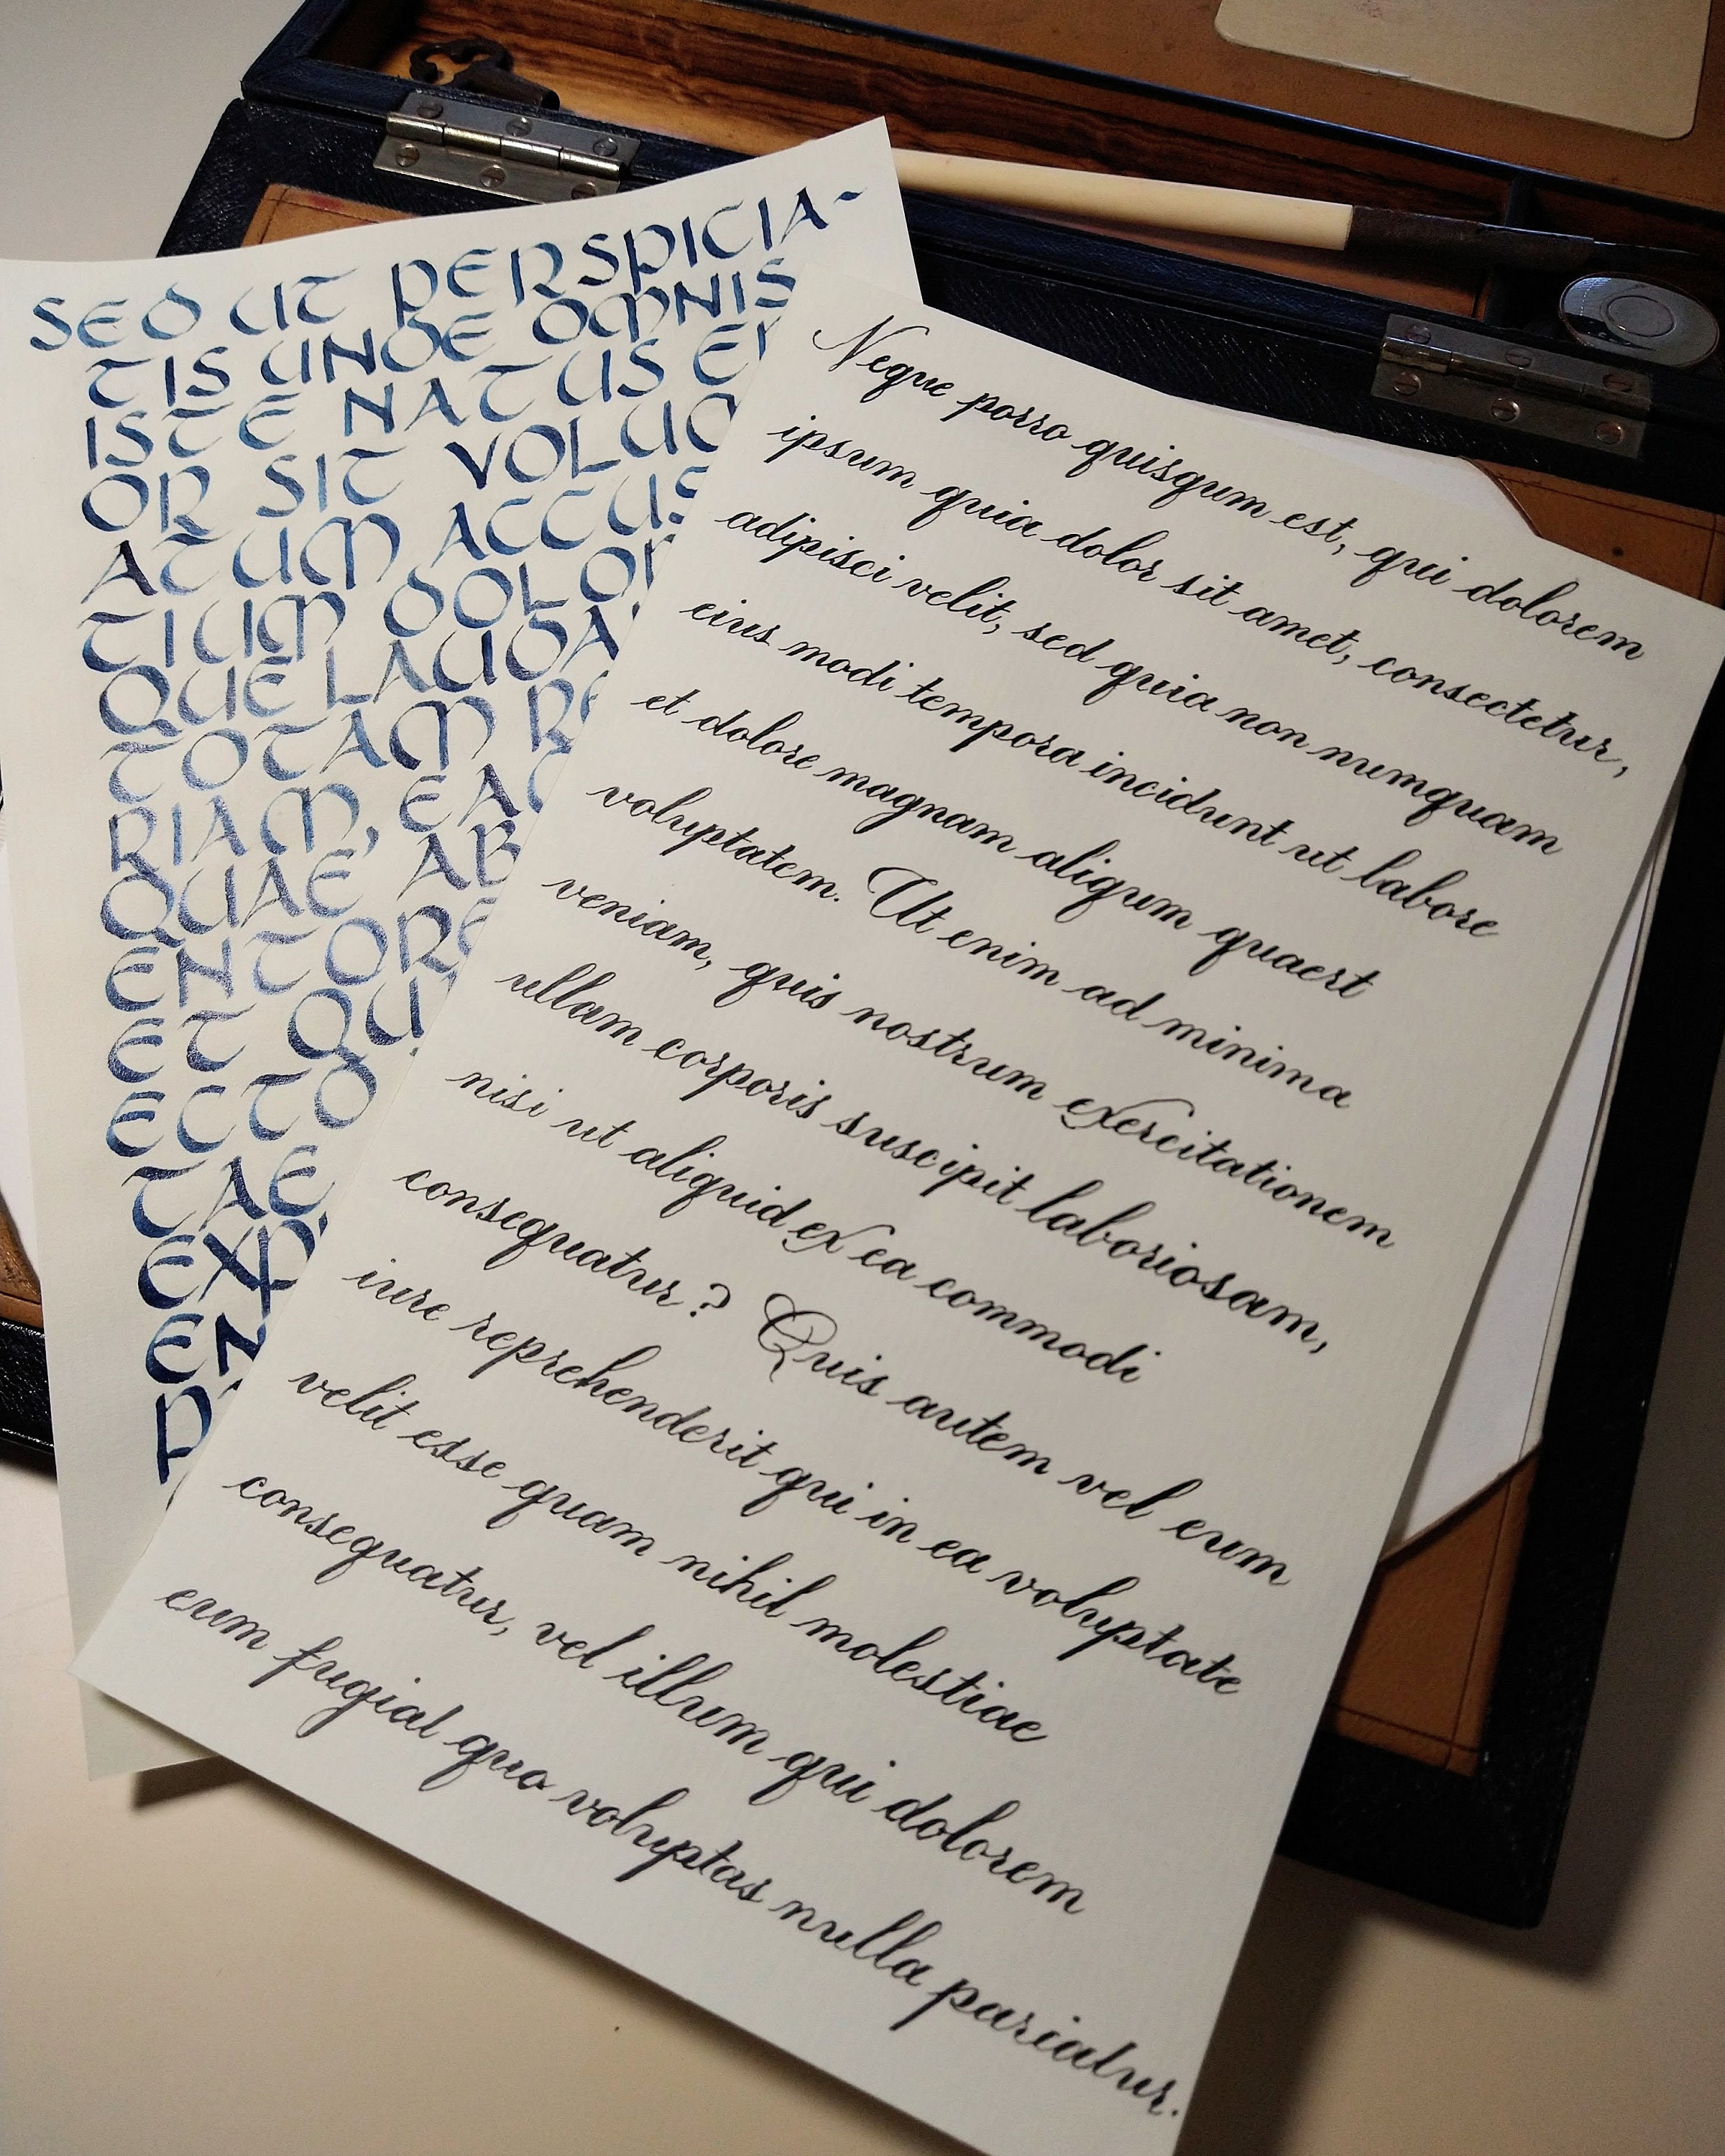 SED UT PERSPICIA-
TIS UNDE OMNIS
ISTE NATUS ER
OR SIT VOLUP
ATUM ACCUS
TIUM DOLOR
QUE LAUDA
TOTAM RE
RIAM, EA
QUAE AB
ENTORE
ET QU
ECTO
TAE
EXP
EN
P
Neque porro quisqum est, qui dolorem
ipsum quia dolor sit amet, consectetur,
adipisci velit, sed quia non numquam
eius modi tempora incidunt ut labore
et dolore magnam aliqum quaert
voluptatem. Ut enim ad minima
veniam, quis nostrum exercitationem
ullam corporis suscipit laboriosam,
nisi ut aliquid ex ea commodi
consequatur? Quis autem vel eum
iure reprehenderit qui in ea voluptate
velit esse quam nihil molestiae
consequatur, vel illum qui dolorem
eum fugiat quo voluptas nulla pariatur.